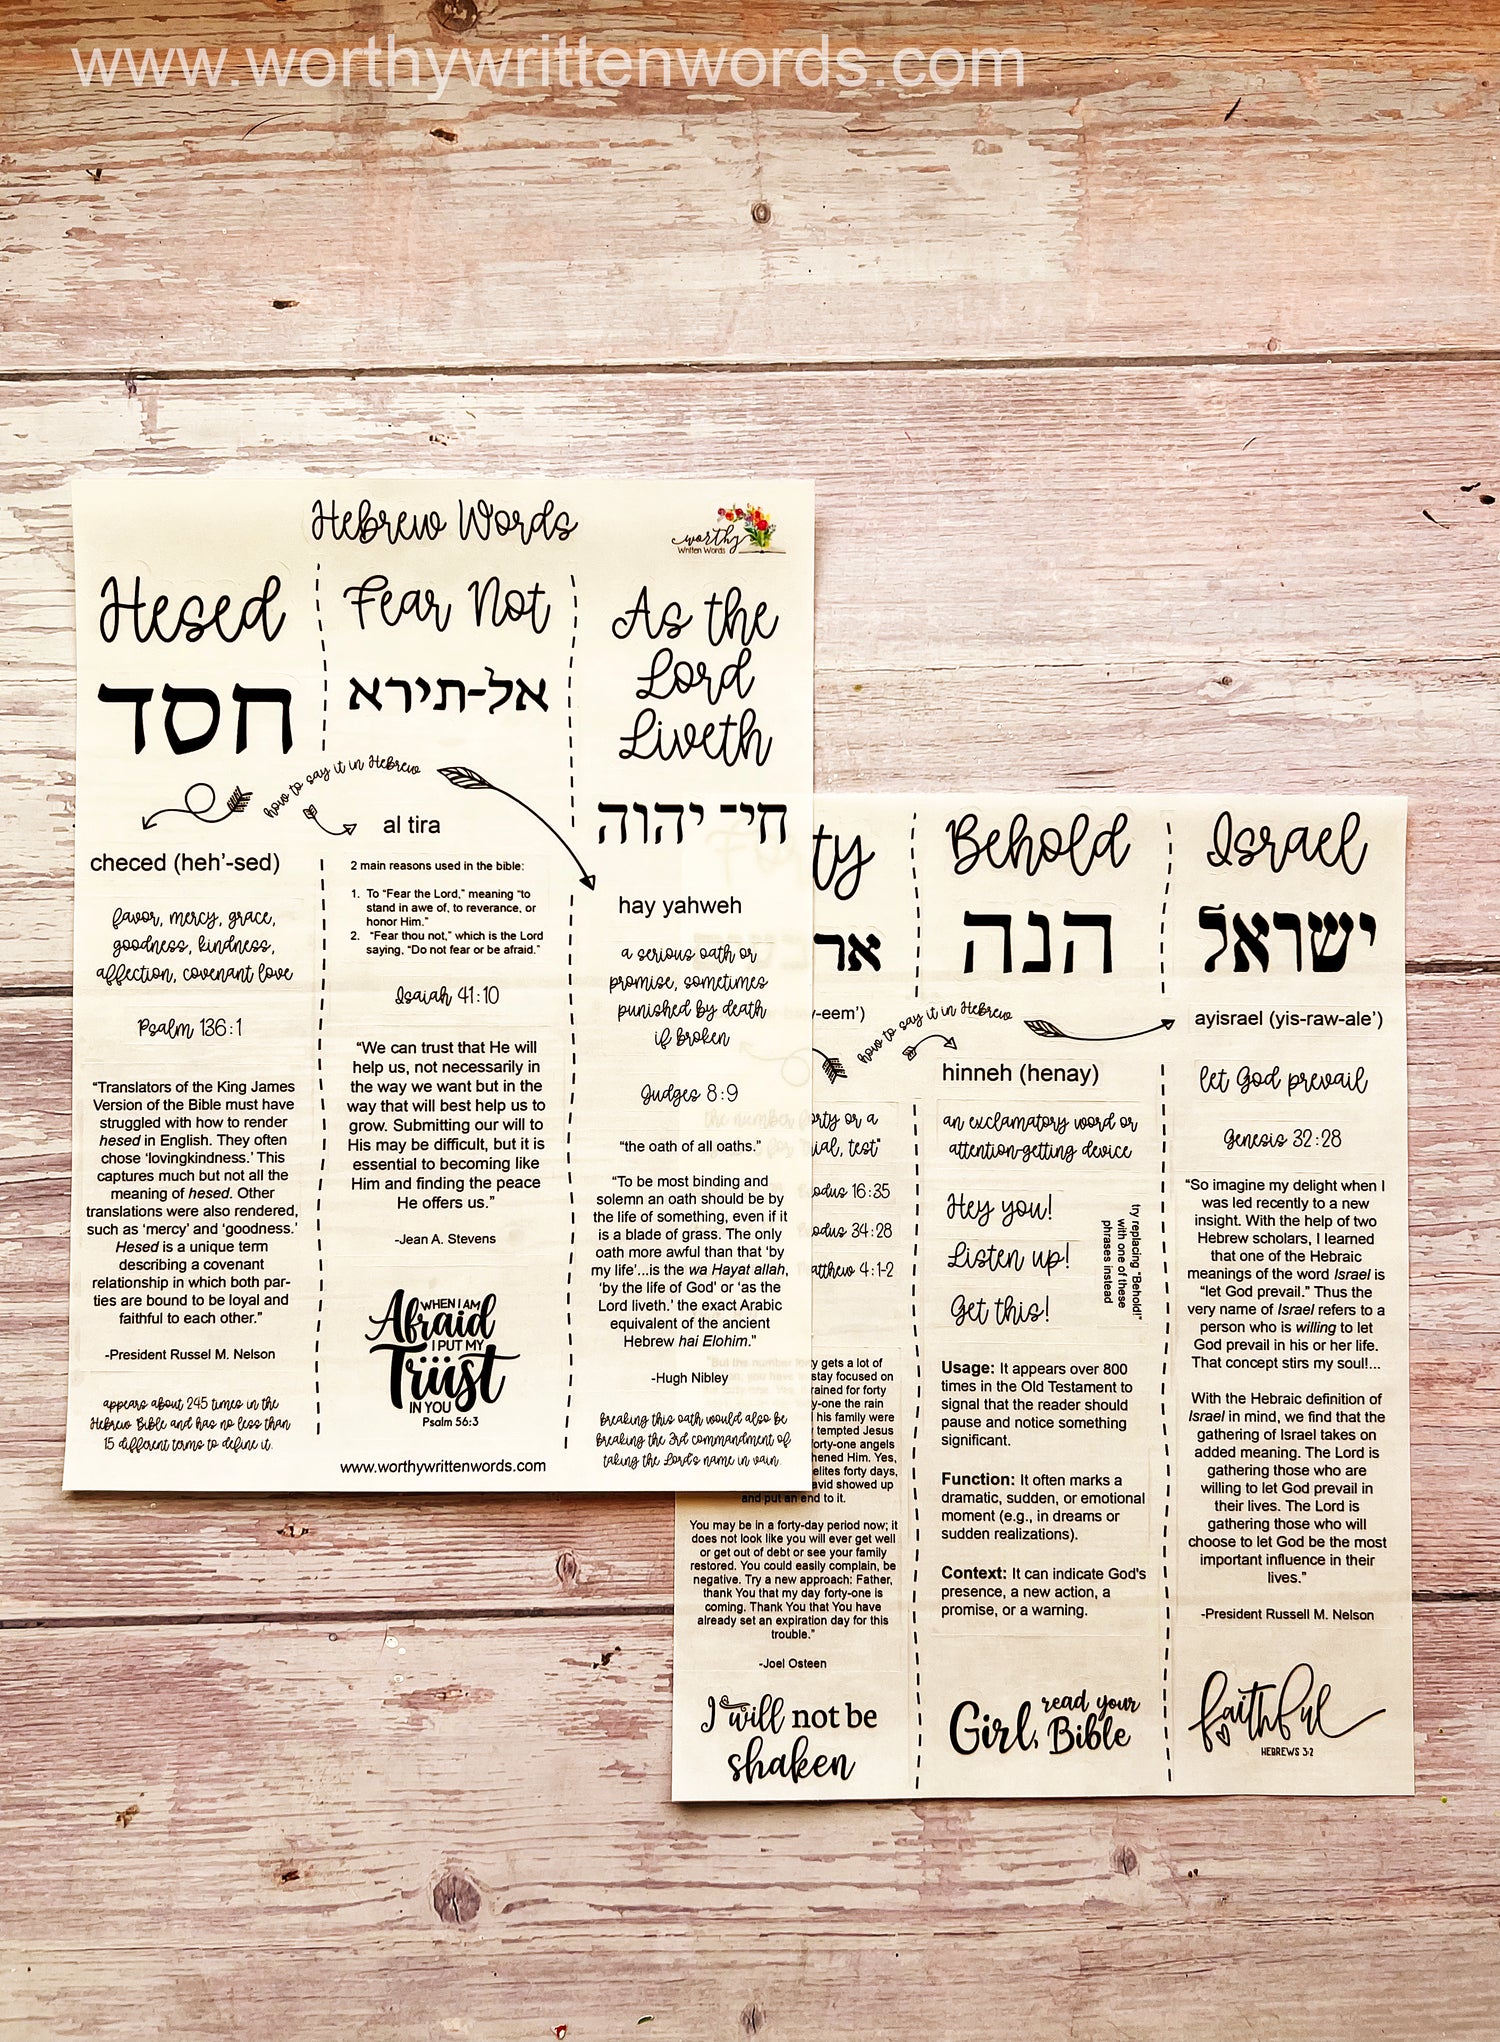 www.worthywrittenwords.com
Hebrew Words
worthy
Written Words
Hesed
חסד
how to say it in Hebrew
checed (heh'-sed)
favor, mercy, grace,
goodness, kindness,
affection, covenant love
Psalm 136:1
"Translators of the King James
Version of the Bible must have
struggled with how to render
hesed in English. They often
chose 'lovingkindness.' This
captures much but not all the
meaning of hesed. Other
translations were also rendered,
such as 'mercy' and 'goodness.'
Hesed is a unique term
describing a covenant
relationship in which both par-
ties are bound to be loyal and
faithful to each other."
-President Russel M. Nelson
appears about 245 times in the
Hebrew Bible and has no less than
15 different terms to define it.
Fear Not
אל-תירא
al tira
2 main reasons used in the bible:
1. To "Fear the Lord," meaning "to
stand in awe of, to reverance, or
honor Him."
2. "Fear thou not," which is the Lord
saying, "Do not fear or be afraid."
Isaiah 41:10
"We can trust that He will
help us, not necessarily in
the way we want but in the
way that will best help us to
grow. Submitting our will to
His may be difficult, but it is
essential to becoming like
Him and finding the peace
He offers us."
-Jean A. Stevens
WHEN I AM
Afraid
I PUT MY
Trust
IN YOU
Psalm 56:3
www.worthywrittenwords.com
As the
Lord
Liveth
חי־ יהוה
hay yahweh
a serious oath or
promise, sometimes
punished by death
if broken
Judges 8:9
"the oath of all oaths."
"To be most binding and
solemn an oath should be by
the life of something, even if it
is a blade of grass. The only
oath more awful than that 'by
my life'...is the wa Hayat allah,
'by the life of God' or 'as the
Lord liveth.' the exact Arabic
equivalent of the ancient
Hebrew hai Elohim."
-Hugh Nibley
Breaking this oath would also be
breaking the 3rd commandment of
taking the Lord's name in vain.
ty
אר
-eem')
forty or a
ial, test"
Exodus 16:35
Exodus 34:28
Matthew 4:1-2
"But the number forty gets a lot of
stay focused on
rained for forty
y-one the rain
his family were
tempted Jesus
forty-one angels
hened Him. Yes,
elites forty days,
avid showed up
and put an end to it.
You may be in a forty-day period now; it
does not look like you will ever get well
or get out of debt or see your family
restored. You could easily complain, be
negative. Try a new approach: Father,
thank You that my day forty-one is
coming. Thank You that You have
already set an expiration day for this
trouble."
-Joel Osteen
I will not be
shaken
Behold
הנה
how to say it in Hebrew
hinneh (henay)
an exclamatory word or
attention-getting device
Hey you!
Listen up!
Get this!
try replacing "Behold!"
with one of these
phrases instead
Usage: It appears over 800
times in the Old Testament to
signal that the reader should
pause and notice something
significant.
Function: It often marks a
dramatic, sudden, or emotional
moment (e.g., in dreams or
sudden realizations).
Context: It can indicate God's
presence, a new action, a
promise, or a warning.
Girl, read your
Bible
Israel
ישראל
ayisrael (yis-raw-ale')
let God prevail
Genesis 32:28
"So imagine my delight when I
was led recently to a new
insight. With the help of two
Hebrew scholars, I learned
that one of the Hebraic
meanings of the word Israel is
"let God prevail." Thus the
very name of Israel refers to a
person who is willing to let
God prevail in his or her life.
That concept stirs my soul!...
With the Hebraic definition of
Israel in mind, we find that the
gathering of Israel takes on
added meaning. The Lord is
gathering those who are
willing to let God prevail in
their lives. The Lord is
gathering those who will
choose to let God be the most
important influence in their
lives."
-President Russell M. Nelson
faithful
HEBREWS 3:2